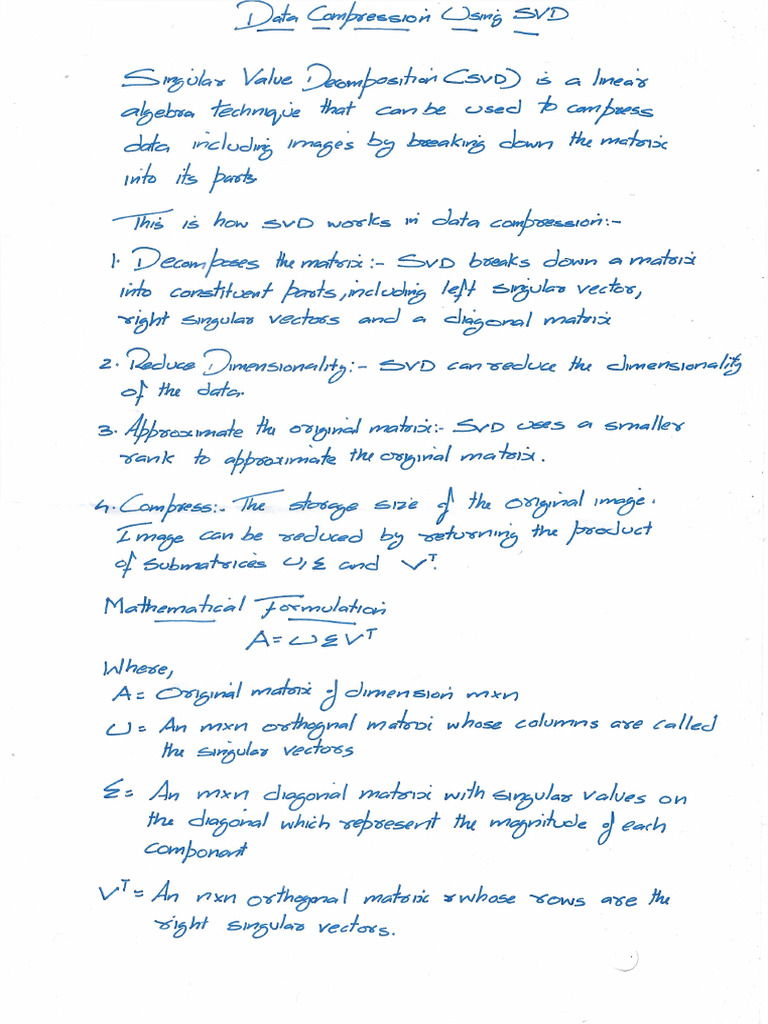 Data Compression Using SVD
Singular Value Decomposition (SVD) is a linear
algebra technique that can be used to compress
data including images by breaking down the matrix
into its parts
This is how SVD works in data compression:-
1. Decomposes the matrix:- SVD breaks down a matrix
into constituent parts, including left singular vector,
right singular vectors and a diagonal matrix
2. Reduce Dimensionality:- SVD can reduce the dimensionality
of the data.
3. Approximate the original matrix:- SVD uses a smaller
rank to approximate the original matrix.
4. Compress:- The storage size of the original image.
Image can be reduced by returning the product
of submatrices U, Σ and V^T.
Mathematical Formulation
A = U Σ V^T
Where,
A = Original matrix of dimension mxn
U = An mxn orthognal matrix whose columns are called
the singular vectors
Σ = An mxn diagonal matrix with singular values on
the diagonal which represent the magnitude of each
componant
V^T = An nxn orthogonal matrix whose rows are the
right singular vectors.